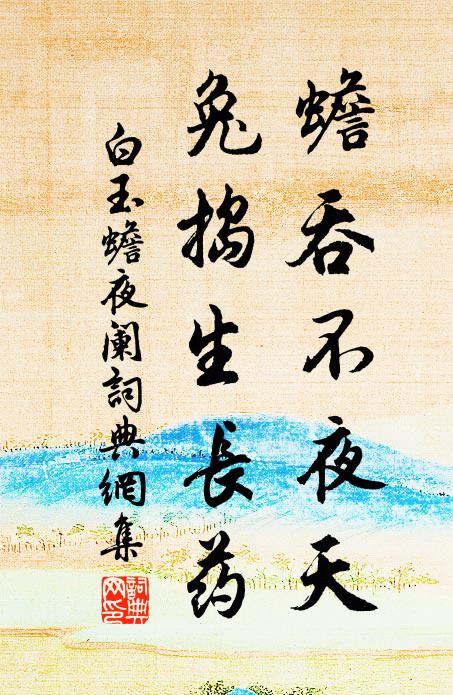 蟾吞不夜天
兔捣生长药
白玉蟾夜阑詞典網集